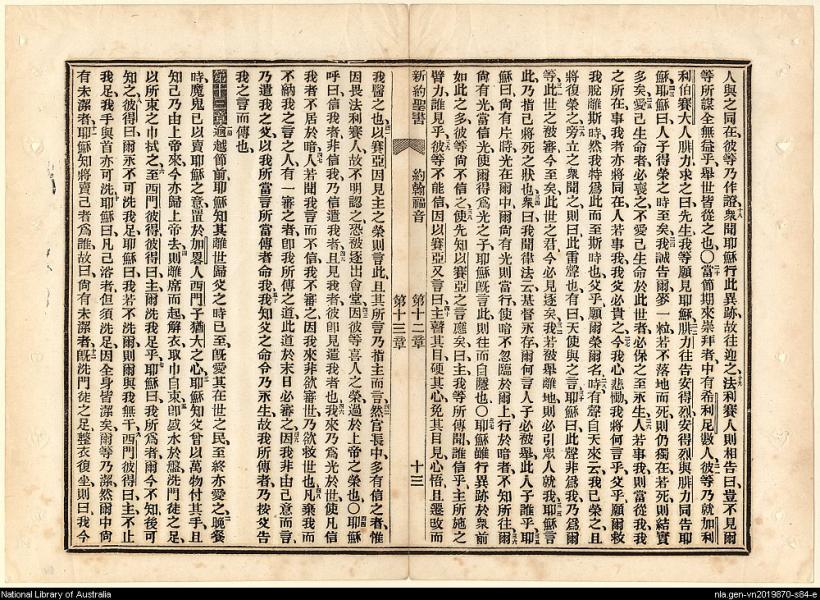 人與之同在彼等乃作證衆聞耶穌行此異跡故往迎之法利賽人則相告曰豈不見爾
等所謀全無益乎舉世皆從之也〇當節期來崇拜者中有希利尼數人彼等乃就加利
利伯賽大人腓力求之曰先生我等願見耶穌腓力往告安得烈安得烈與腓力同告耶
穌耶穌曰人子得榮之時至矣我誠告爾麥一粒若不落地而死則仍獨在若死則結實
多矣愛己生命者必喪之不愛己生命於此世者必保之至永生人若事我則當從我我
之所在事我者亦將同在人若事我我父必貴之今我心悲慟我將何言乎父乎願爾救
我脫離斯時然我特爲此而至斯時也父乎願爾榮爾名時有聲自天來云我已榮之且
將復榮之旁立之衆聞之則曰此雷聲也有曰天使與之言耶穌曰此聲非爲我乃爲爾
等此世之被審今至矣此世之君今必見逐矣我若被舉離地則必引眾人就我耶穌言
此乃指己將死之狀也衆曰我聞律法云基督永存爾何言人子必被舉此人子誰乎耶
穌曰尙有片時光在爾中爾尙有光則當行使暗不忽臨於爾上行於暗者不知所往爾
尙有光當信光使爾得爲光之子耶穌旣言此則往而自隱也〇耶穌雖行異跡於衆前
如此之多彼等尙不信之使先知以賽亞之言應矣曰主我等所傳聞誰信乎主所施之
臂力誰見乎彼等不能信因以賽亞又言曰主瞽其目硬其心免其目見心悟且遷改而
新約聖書 約翰福音 第十二章 十三
第十三章
我醫之也以賽亞因見主之榮則言此且其所言乃指主而言然官長中多有信之者惟
因畏法利賽人故不明認之恐被逐出會堂因彼等喜人之榮過於上帝之榮也〇耶穌
呼曰信我者非信我乃信遣我者且見我者彼卽見遣我者也我來乃爲光於世使凡信
我者不居於暗人若聞我言而不信我不審之因我來非欲審世乃欲救世也凡棄我而
不納我之言之人有一審之者卽我所傳之道此道於末日必審之因我非由己意而言
乃遣我之父以我所當言所當傳者命我我知父之命令乃永生故我所傳者乃按父告
我之言而傳也
第十三章逾越節前耶穌知其離世歸父之時已至旣愛其在世之民至終亦愛之晚餐
時魔鬼已以賣耶穌之意置於加畧人西門子猶大之心耶穌知父曾以萬物付其手且
知己乃由上帝來今亦歸上帝去則離席而起解衣取巾自束卽盛水於盤洗門徒之足
以所束之巾拭之至西門彼得彼得曰主爾洗我足乎耶穌曰我所爲者爾今不知後可
知之彼得曰爾永不可洗我足耶穌曰我若不洗爾則爾與我無干西門彼得曰主不止
我足我手與首亦可洗耶穌曰凡已浴者但須洗足因全身皆潔矣爾等乃潔然爾中尙
有未潔者耶穌知將賣己者爲誰故曰尙有未潔者旣洗門徒之足整衣復坐則曰我今
National Library of Australia
nla.gen-vn2019870-s84-e